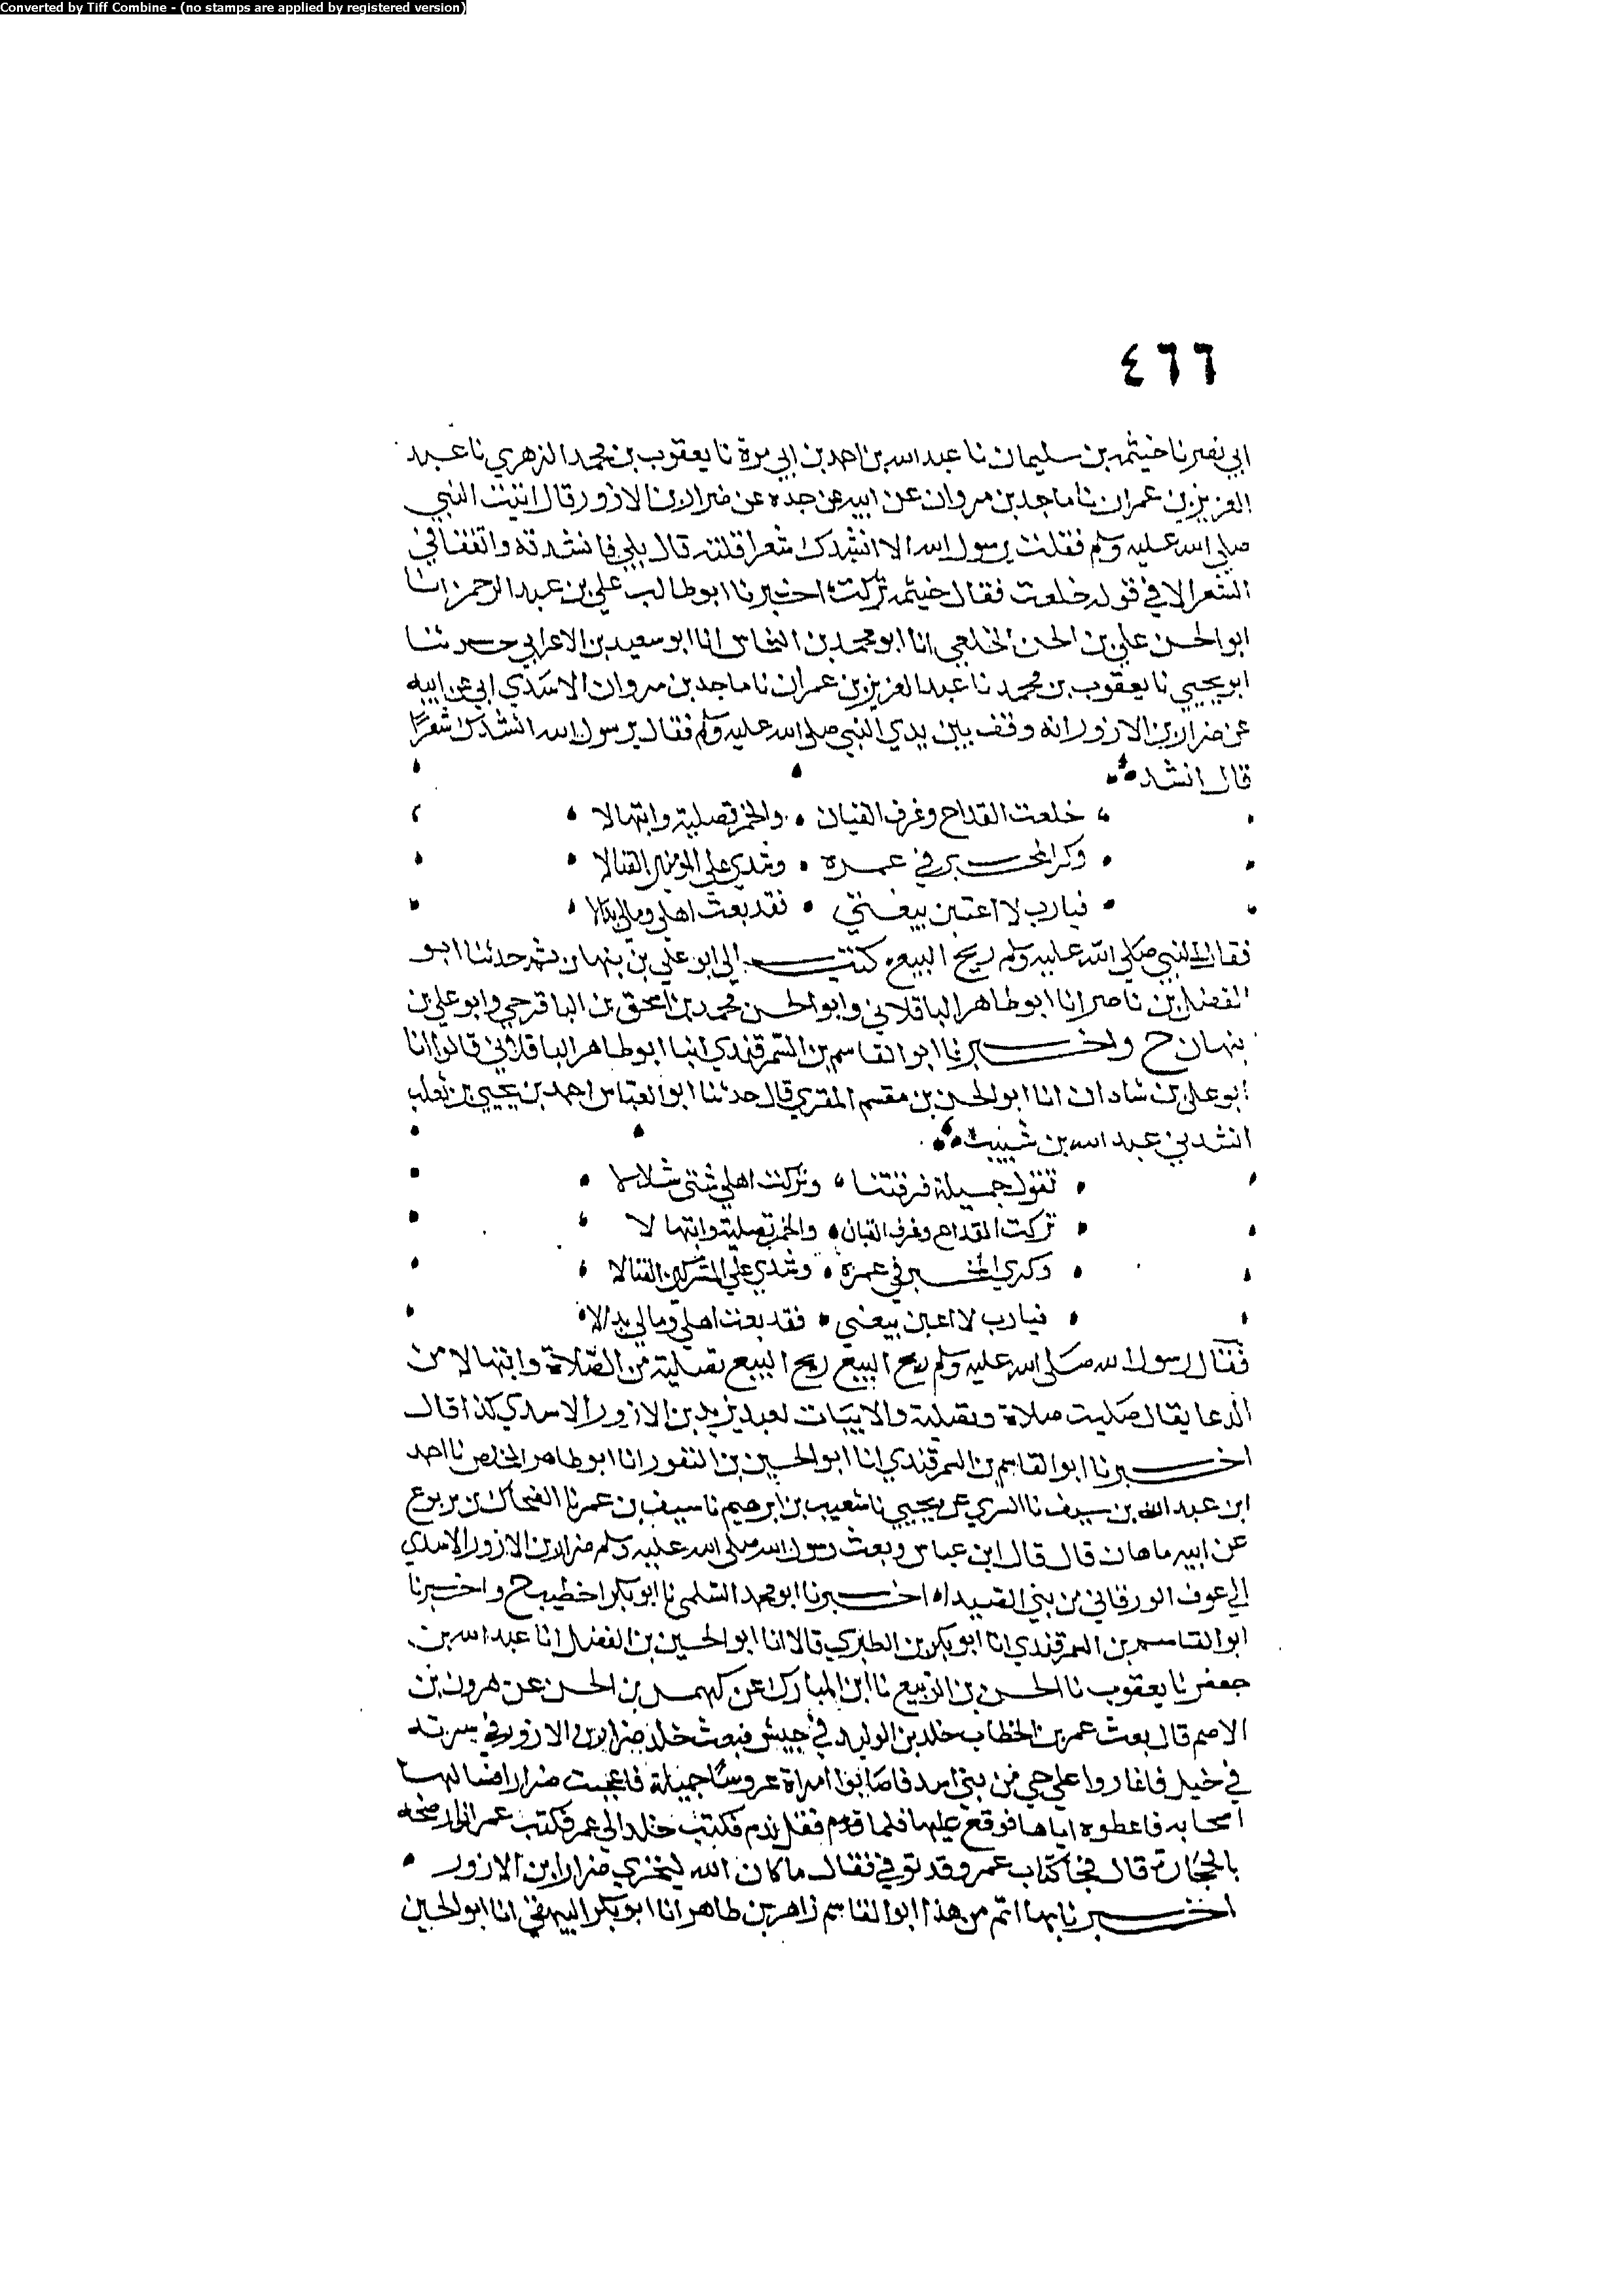 Converted by Tiff Combine - (no stamps are applied by registered version)
٤٦٦
ابي نصر نا خيثمه بن سليمان نا عبد الله بن احمد بن ابي مرة نا يعقوب بن محمد الزهري نا عبد
العزيز بن عمران نا ماجد بن مروان عن ابيه عن جده عن ضرار بن الازور قال اتيت النبي
صلي الله عليه وسلم فقلت يرسول الله الا انشدك شعرا قلته قال بلي فانشدته واتفقا في
الشعر الا في قوله خلعت فقال خيثمه تركت اخبرنا ابو طالب علي بن عبد الرحمن انا
ابو الحسن علي بن الحسن الخلعي انا ابو محمد بن النحاس انا ابو سعيد بن الاعرابي حدثنا
ابو يحيي نا يعقوب بن محمد نا عبد العزيز بن عمران نا ماجد بن مروان الاسدي ابي عن ابيه
عن ضرار بن الازور انه وقف بين يدي النبي صلي الله عليه وسلم فقال يرسول الله انشدك شعرًا
قال انشد
خلعت القداح وغرف القيان • والخمر تصلية وابتهالا
وكر المحبر في غمرة • وشدي علي المومنين القتالا
فيارب لا اغبن بيعتي • فقد بعت اهلي ومالي بدالا
فقال النبي صلي الله عليه وسلم ربح البيع كتب الي ابو علي بن بنهان ثم حدثنا ابو
الفضل بن ناصر انا ابو طاهر الباقلاني وابو الحسن محمد بن اسحق بن الباقرحي وابو علي بن
بنهان ح واخبرنا ابو القاسم بن السمرقندي انبا ابو طاهر الباقلاني قالوا انا
ابو علي بن شادان انا ابو الحسن بن مقسم المقري قال حدثنا ابو العباس احمد بن يحيي بن ثعلب
انشدني عبد الله بن شبيب
تقول جميلة فرقتنا • وتركت اهلي شتي شلالا
تركت القداح وغرف القيان • والخمر تصلية وابتهالا
وكري المحبر في غمرة • وشدي علي المشركين القتالا
فيارب لا اغبن بيعتي • فقد بعت اهلي ومالي بدالا
فقال رسول الله صلي الله عليه وسلم ربح البيع ربح البيع تصلية من الصلاة وابتهالا من
الدعا يقال صليت صلاة وتصلية والابيات لعبد يزيد بن الازور الاسدي كذا قال
اخبرنا ابو القاسم بن السمرقندي انا ابو الحسين بن النقور انا ابو طاهر المخلص نا احمد
ابن عبد الله بن سيف نا السري عن يحيي نا شعيب بن ابرهيم نا سيف بن عمر نا الضحاك بن يربوع
عن ابيه ماهان قال قال ابن عباس وبعث رسول الله صلي الله عليه وسلم ضرار بن الازور الاسدي
الي عوف الورقاني من بني الصيدا اخبرنا ابو محمد السلمي نا ابو بكر اخطيب ح واخبرنا
ابو القاسم بن السمرقندي انا ابو بكر بن الطبري قالا انا ابو الحسين بن الفضل انا عبد الله بن
جعفر نا يعقوب نا الحسن بن الربيع نا ابن المبارك عن كهمس بن الحسن عن هرون بن
الاصم قال بعث عمر بن الخطاب خلد بن الوليد في جيش فبعث خلد ضرار بن الازور في سرية
في خيل فاغاروا علي حي من بني اسد فاصابوا امراة عروسًا جميلة فاعجبت ضرارا فسالها
اصحابه فاعطوه اياها فوقع عليها فلما قدم فقل ندم فكتب خلد الي عمر فكتب عمر ان ارضخه
بالحجارة قال فجا كتاب عمر وقد توفي فقال ما كان الله ليخزي ضرار ابن الازور
اخبرنا بها اتم من هذا ابو القاسم زاهر بن طاهر انا ابو بكر البيهقي انا ابو الحسين